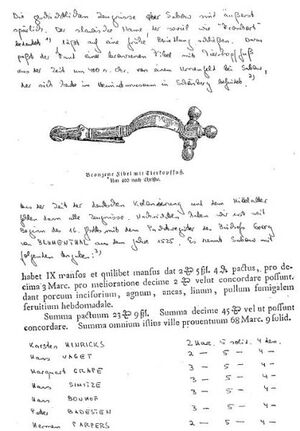 Die geschichtlichen Zeugnisse über Sabow sind äußerst
spärlich. Der slawische Name, der soviel wie "
bedeutet, läßt auf eine frühe Besiedlung schließen. Dazu
paßt der Fund einer bronzenen Fibel mit Tierkopffuß
aus der Zeit um 400 n. Chr. von einem Urnenfeld bei Sabow,
der sich heute im Heimatmuseum in Schönberg befindet. 2)
Bronzene Fibel mit Tierkopffuß.
Um 400 nach Christo.
Aus der Zeit der deutschen Kolonisierung und dem Mittelalter
fehlen dann alle Zeugnisse. Nachrichten haben wir erst seit
Beginn des 16. Jhdts mit dem Pachtregister des Bischofs Georg
von BLUMENTHAL aus dem Jahre 1525. Es nennt Sabow mit
folgenden Angaben: 3)
habet IX mansos et quilibet mansus dat 2 5 ßl. 4 pactus, pro de-
cima 3 Marc. pro melioratione decime 2 velut concordare possunt.
dant porcum incisorium, agnum, ancas, linum, pullum fumigalem
seruitium hebdomadale.
Summa pactuum 23 9 ßl. Summa decime 45 vel ut possunt
concordare. Summa omnium istius ville prouentuum 68 Marc. 9 solid.
Karsten HINRICKS 2 Marc. 5 solid. 4 den.
Hans VAGET 2 — 5 — 4 —
Marquart GRAPE 3 — 5 — 4 —
Hans 3 — 5 — 4 —
Hans 3 — 5 — 4 —
BADESIEN 2 — 5 — 4 —
Hermen PARPERS 2 — 5 — 4 —